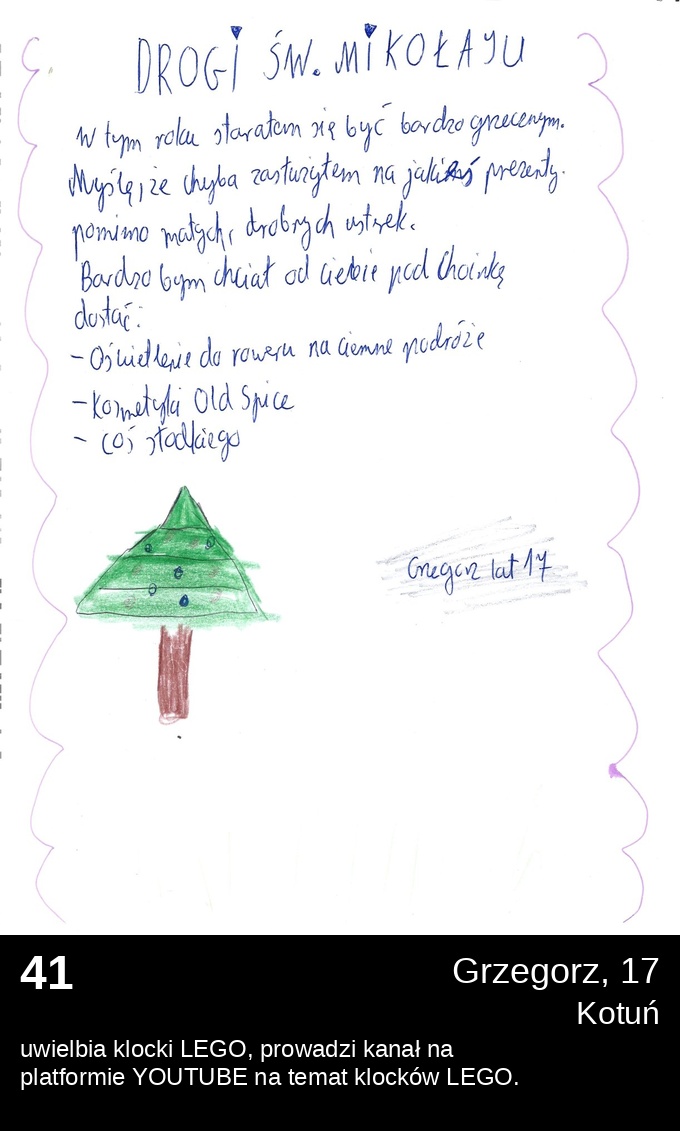 DROGI ŚW. MIKOŁAJU
W tym roku starałem się być bardzo grzecznym.
Myślę, że chyba zasłużyłem na jakieś prezenty.
pomimo małych, drobnych ustrek.
Bardzo bym chciał od ciebie pod Choinkę
dostać:
- Oświetlenie do roweru na ciemne podróże
- Kosmetyki Old Spice
- coś słodkiego
Grzegorz lat 17
41
Grzegorz, 17
Kotuń
uwielbia klocki LEGO, prowadzi kanał na
platformie YOUTUBE na temat klocków LEGO.